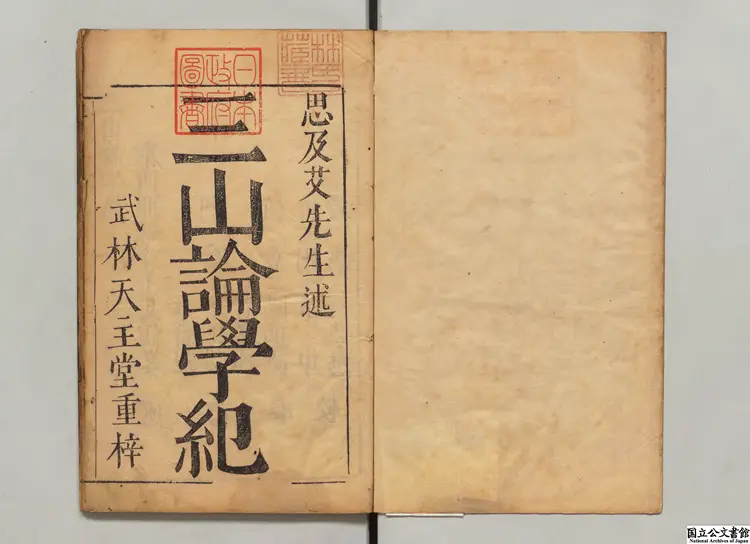 思及艾先生述
三山論學紀
武林天主堂重梓
日本政府圖書
国立公文書館
National Archives of Japan